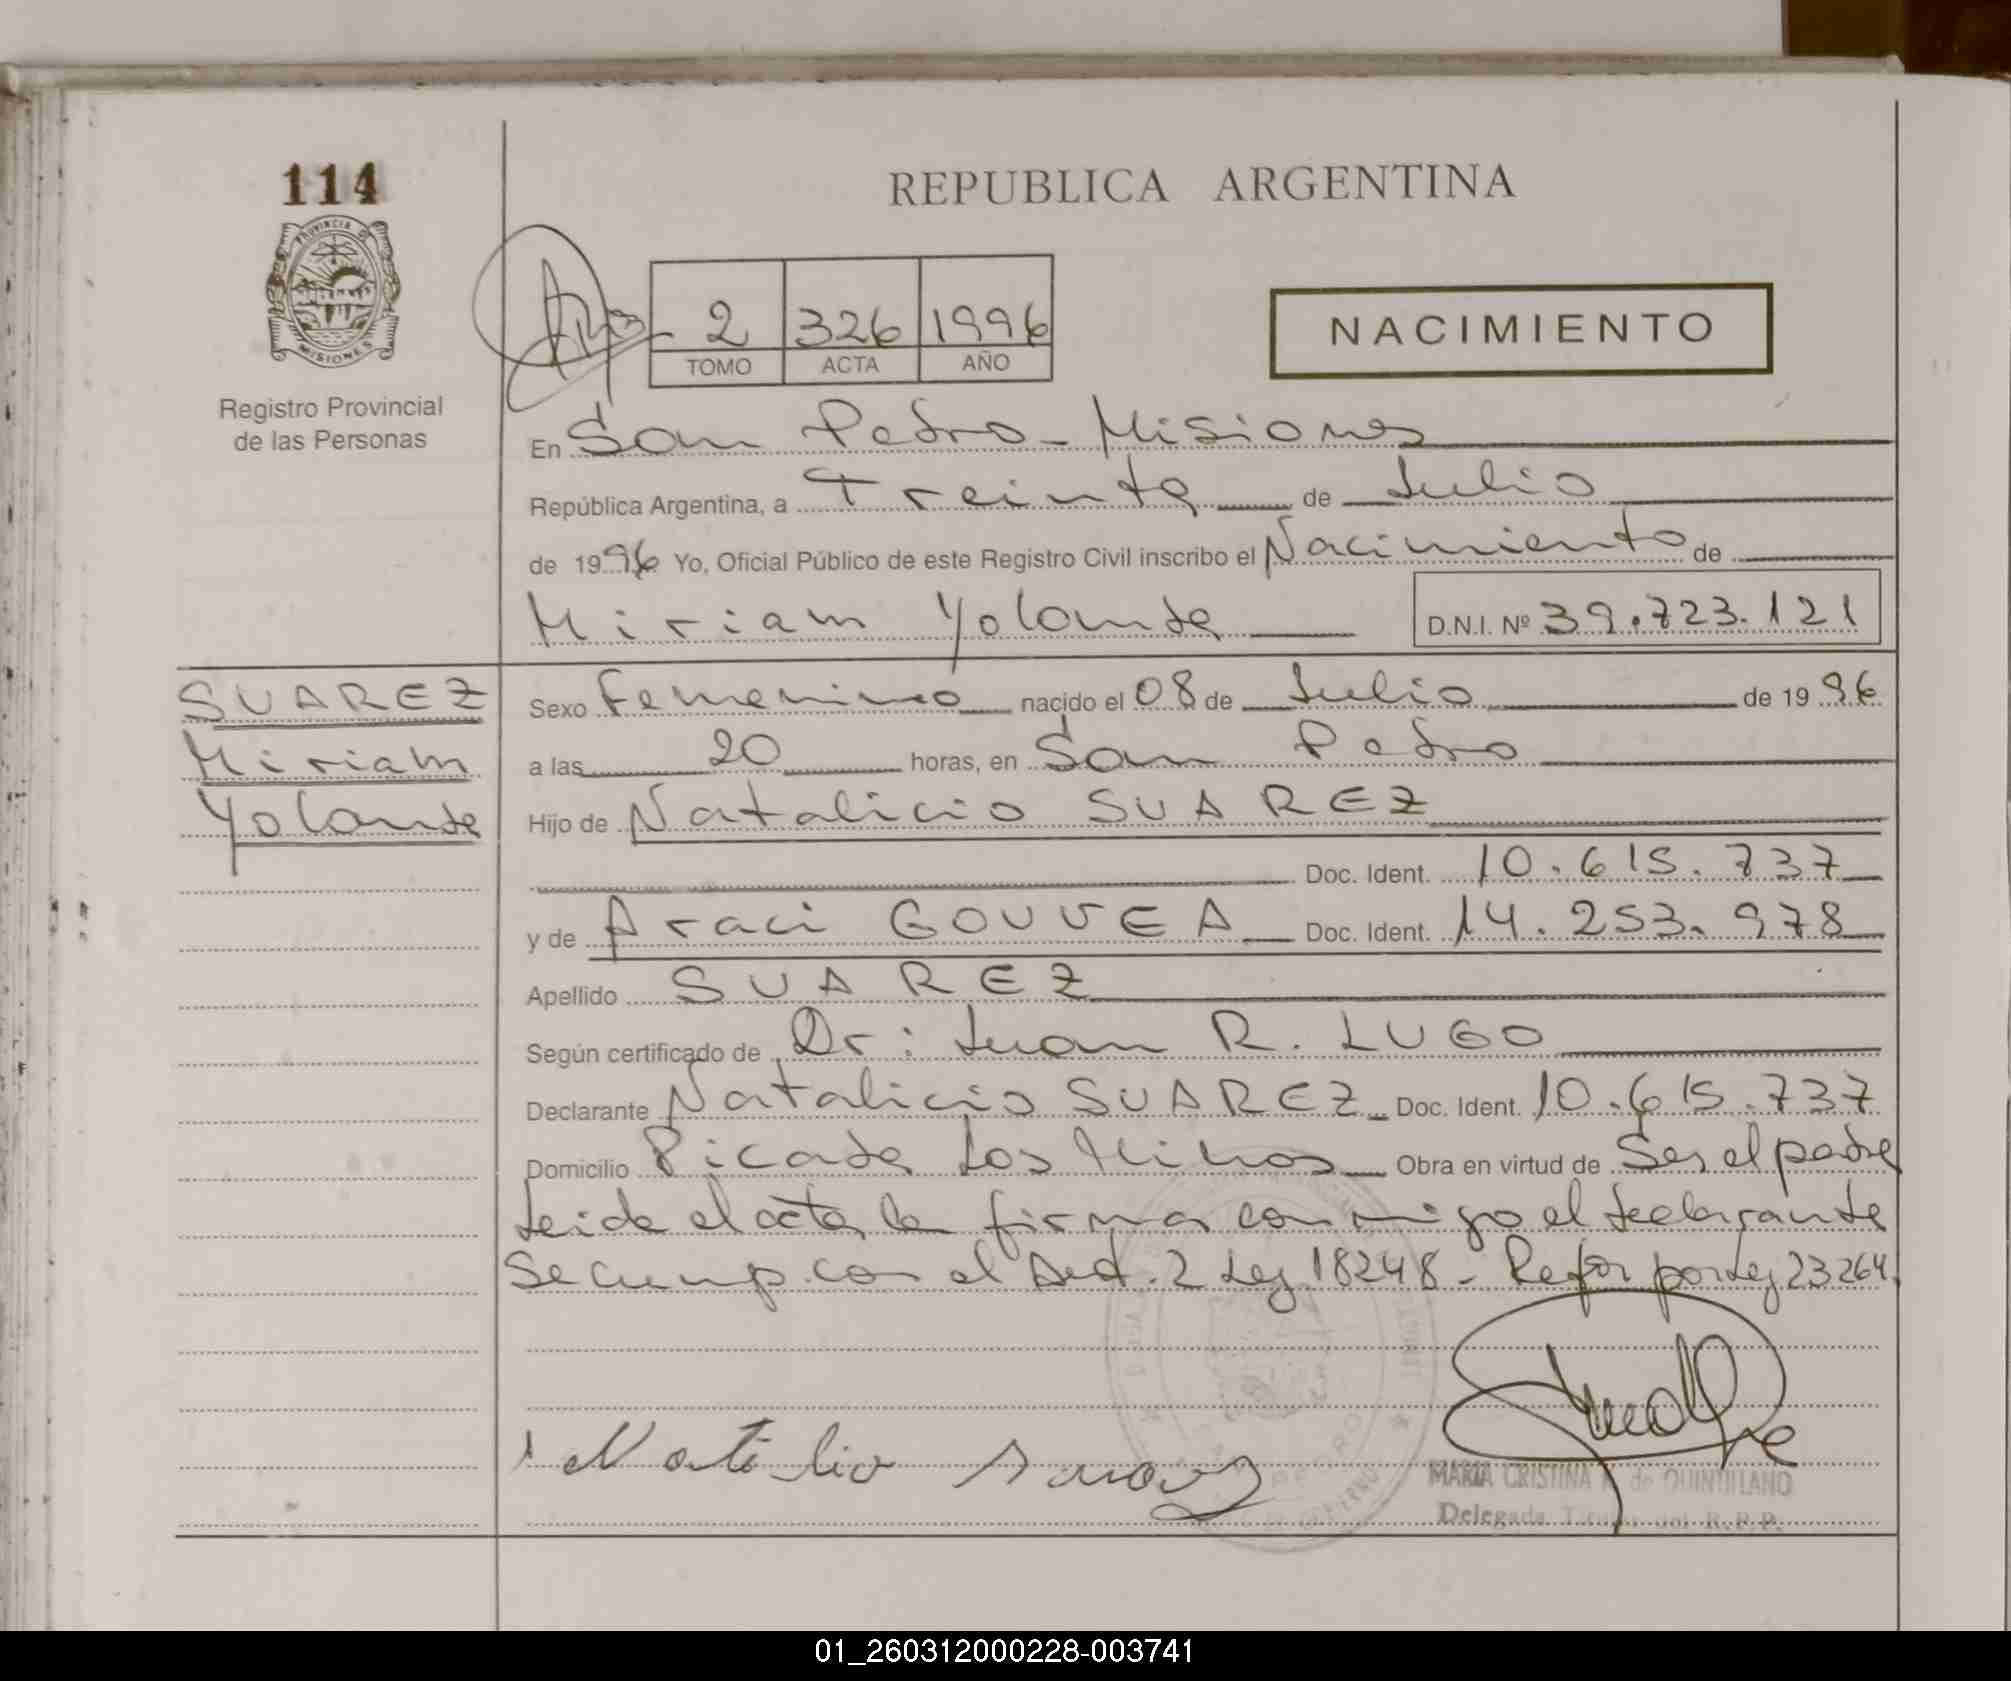 114
PROVINCIA DE
MISIONES
Registro Provincial
de las Personas
REPUBLICA ARGENTINA
2 326 1996
TOMO ACTA AÑO
NACIMIENTO
En San Pedro - Misiones
República Argentina, a Treinta de Julio
de 1996 Yo, Oficial Público de este Registro Civil inscribo el Nacimiento de
Miriam Yolanda D.N.I. Nº 39.723.121
SUAREZ
Miriam
Yolanda
Sexo Femenino nacido el 08 de Julio de 1996
a las 20 horas, en San Pedro
Hijo de Natalicio SUAREZ
Doc. Ident. 10.615.737
y de Araci GOUVEA Doc. Ident. 14.253.978
Apellido SUAREZ
Según certificado de Dr: Juan R. LUGO
Declarante Natalicio SUAREZ Doc. Ident. 10.615.737
Domicilio Picada Los Obra en virtud de Ser el padre
Leida el acta la firma conmigo el declarante
Se cump. con el Art. 2 Ley 18248 - Refor por Ley 23264.
MARIA CRISTINA de QUINTILLANO
Delegada Titular del R.P.P.
01_260312000228-003741